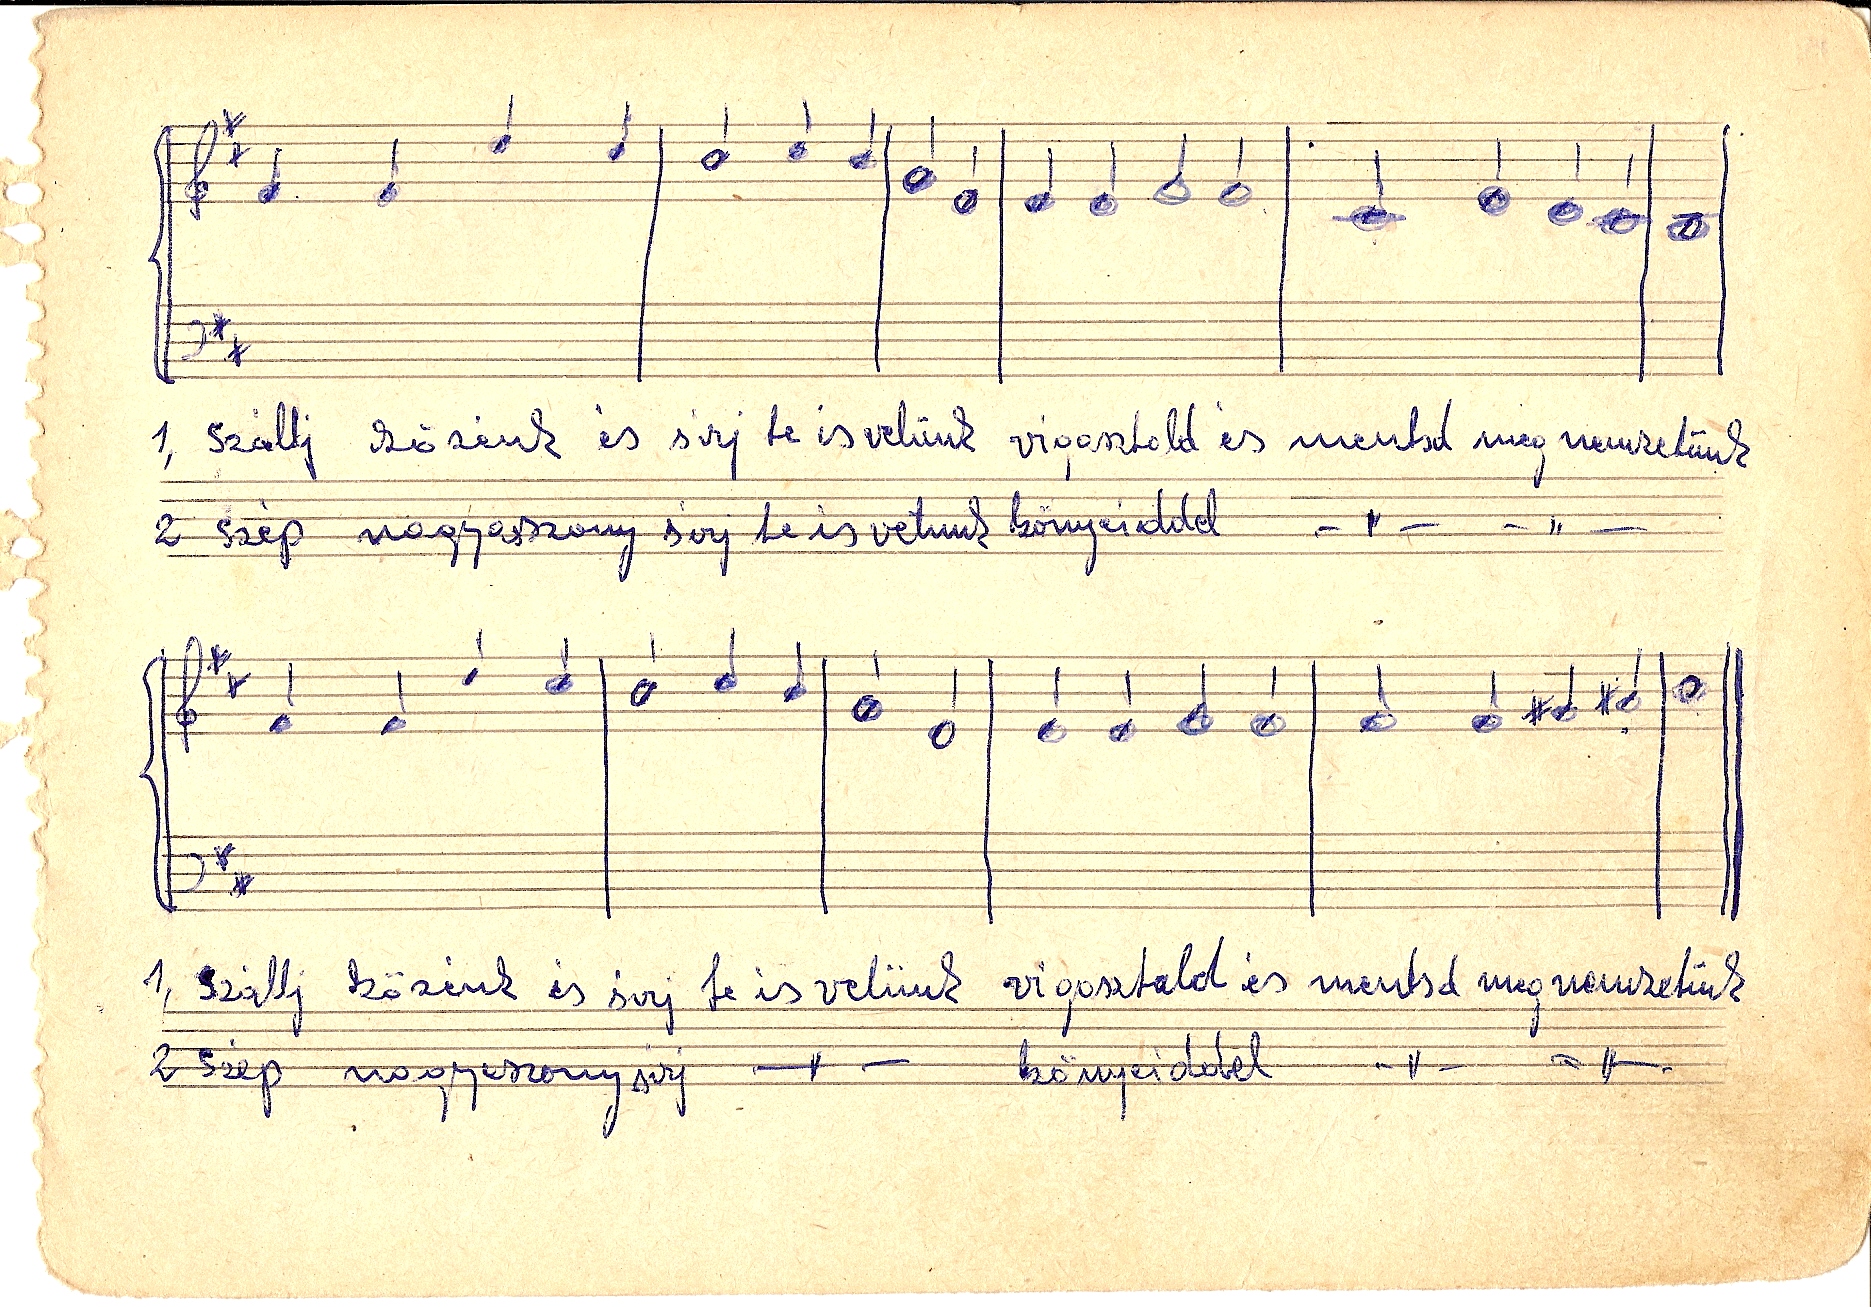 1, Szállj közénk és sirj te is velünk vigasztald és mentsd meg nemzetünk
2 Szép nagyasszony sirj te is velünk könyeiddel — " — — " —
1, Szállj közénk és sirj te is velünk vigasztald és mentsd meg nemzetünk
2 Szép nagyasszony sirj — " — könyeiddel — " — — " —.